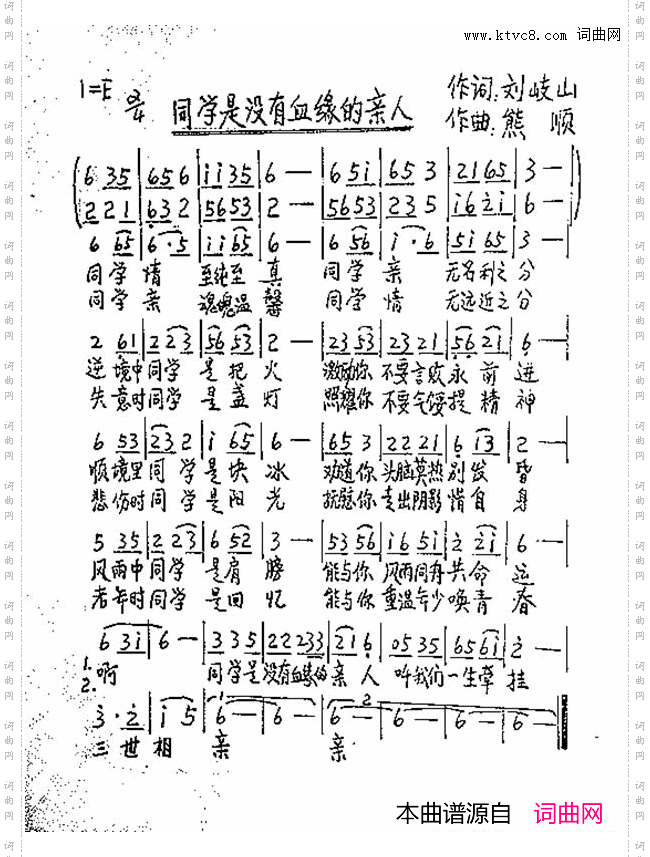 www.ktvc8.com 词曲网
1=E 2/4 同学是没有血缘的亲人 作词:刘岐山
作曲:熊 顺
6 35 | 656 | i i 35 | 6 — | 6 5i | 65 3 | 2165 | 3 —
221 | 632 | 5653 | 2 — | 5653 | 23 5 | i6 2i | 6 —
6 65 | 6·5 | i i 65 | 6 — | 6 56 | i·6 | 5i 65 | 3 —
同学 情 至纯至 真 同学 亲 无名利之分
同学 亲 魂魄温 馨 同学 情 无远近之分
2 61 | 2 23 | 56 53 | 2 — | 23 53 | 23 21 | 56 21 | 6 —
逆境中同学 是把 火 激励你 不要言败永 前 进
失意时同学 是盏 灯 照耀你 不要气馁提 精 神
6 53 | 23 2 | i 65 | 6 — | 65 3 | 22 21 | 6 13 | 2 —
顺境里同 学是块 冰 劝道你 头脑莫热别 发 昏
悲伤时同 学是阳 光 抚慰你 走出阴影惜自 身
5 35 | 2 23 | 6 52 | 3 — | 53 56 | i6 5i | 2 2i | 6 —
风雨中同学 是肩 膀 能与你 风雨同舟共命 运
老年时同学 是回 忆 能与你 重温年少唤青 春
6 3i | 6 — | 3 35 | 22233 | 21 6 | 05 35 | 65 6i | 2 —
1.
2. 啊 同学是没有血缘的 亲 人 叫我们一生牵 挂
3·2 | i 5 | 6 — | 6 — | 6 — | 6 — | 6 — | 6 — ‖
三 世 相 亲 亲
本曲谱源自 词曲网